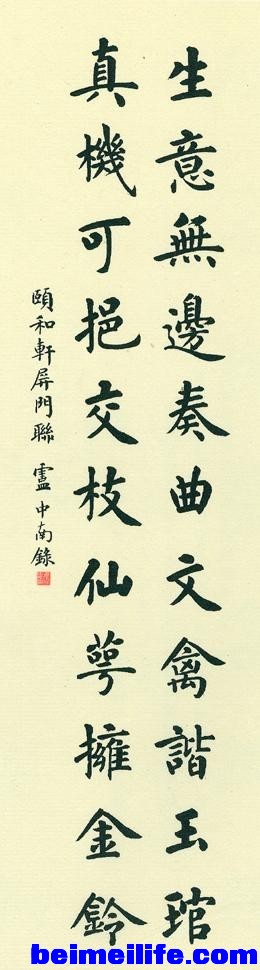 生意無邊奏曲文禽諧玉琯
真機可挹交枝仙萼擁金鈴
頤和軒屏門聯 盧中南錄
beimeilife.com